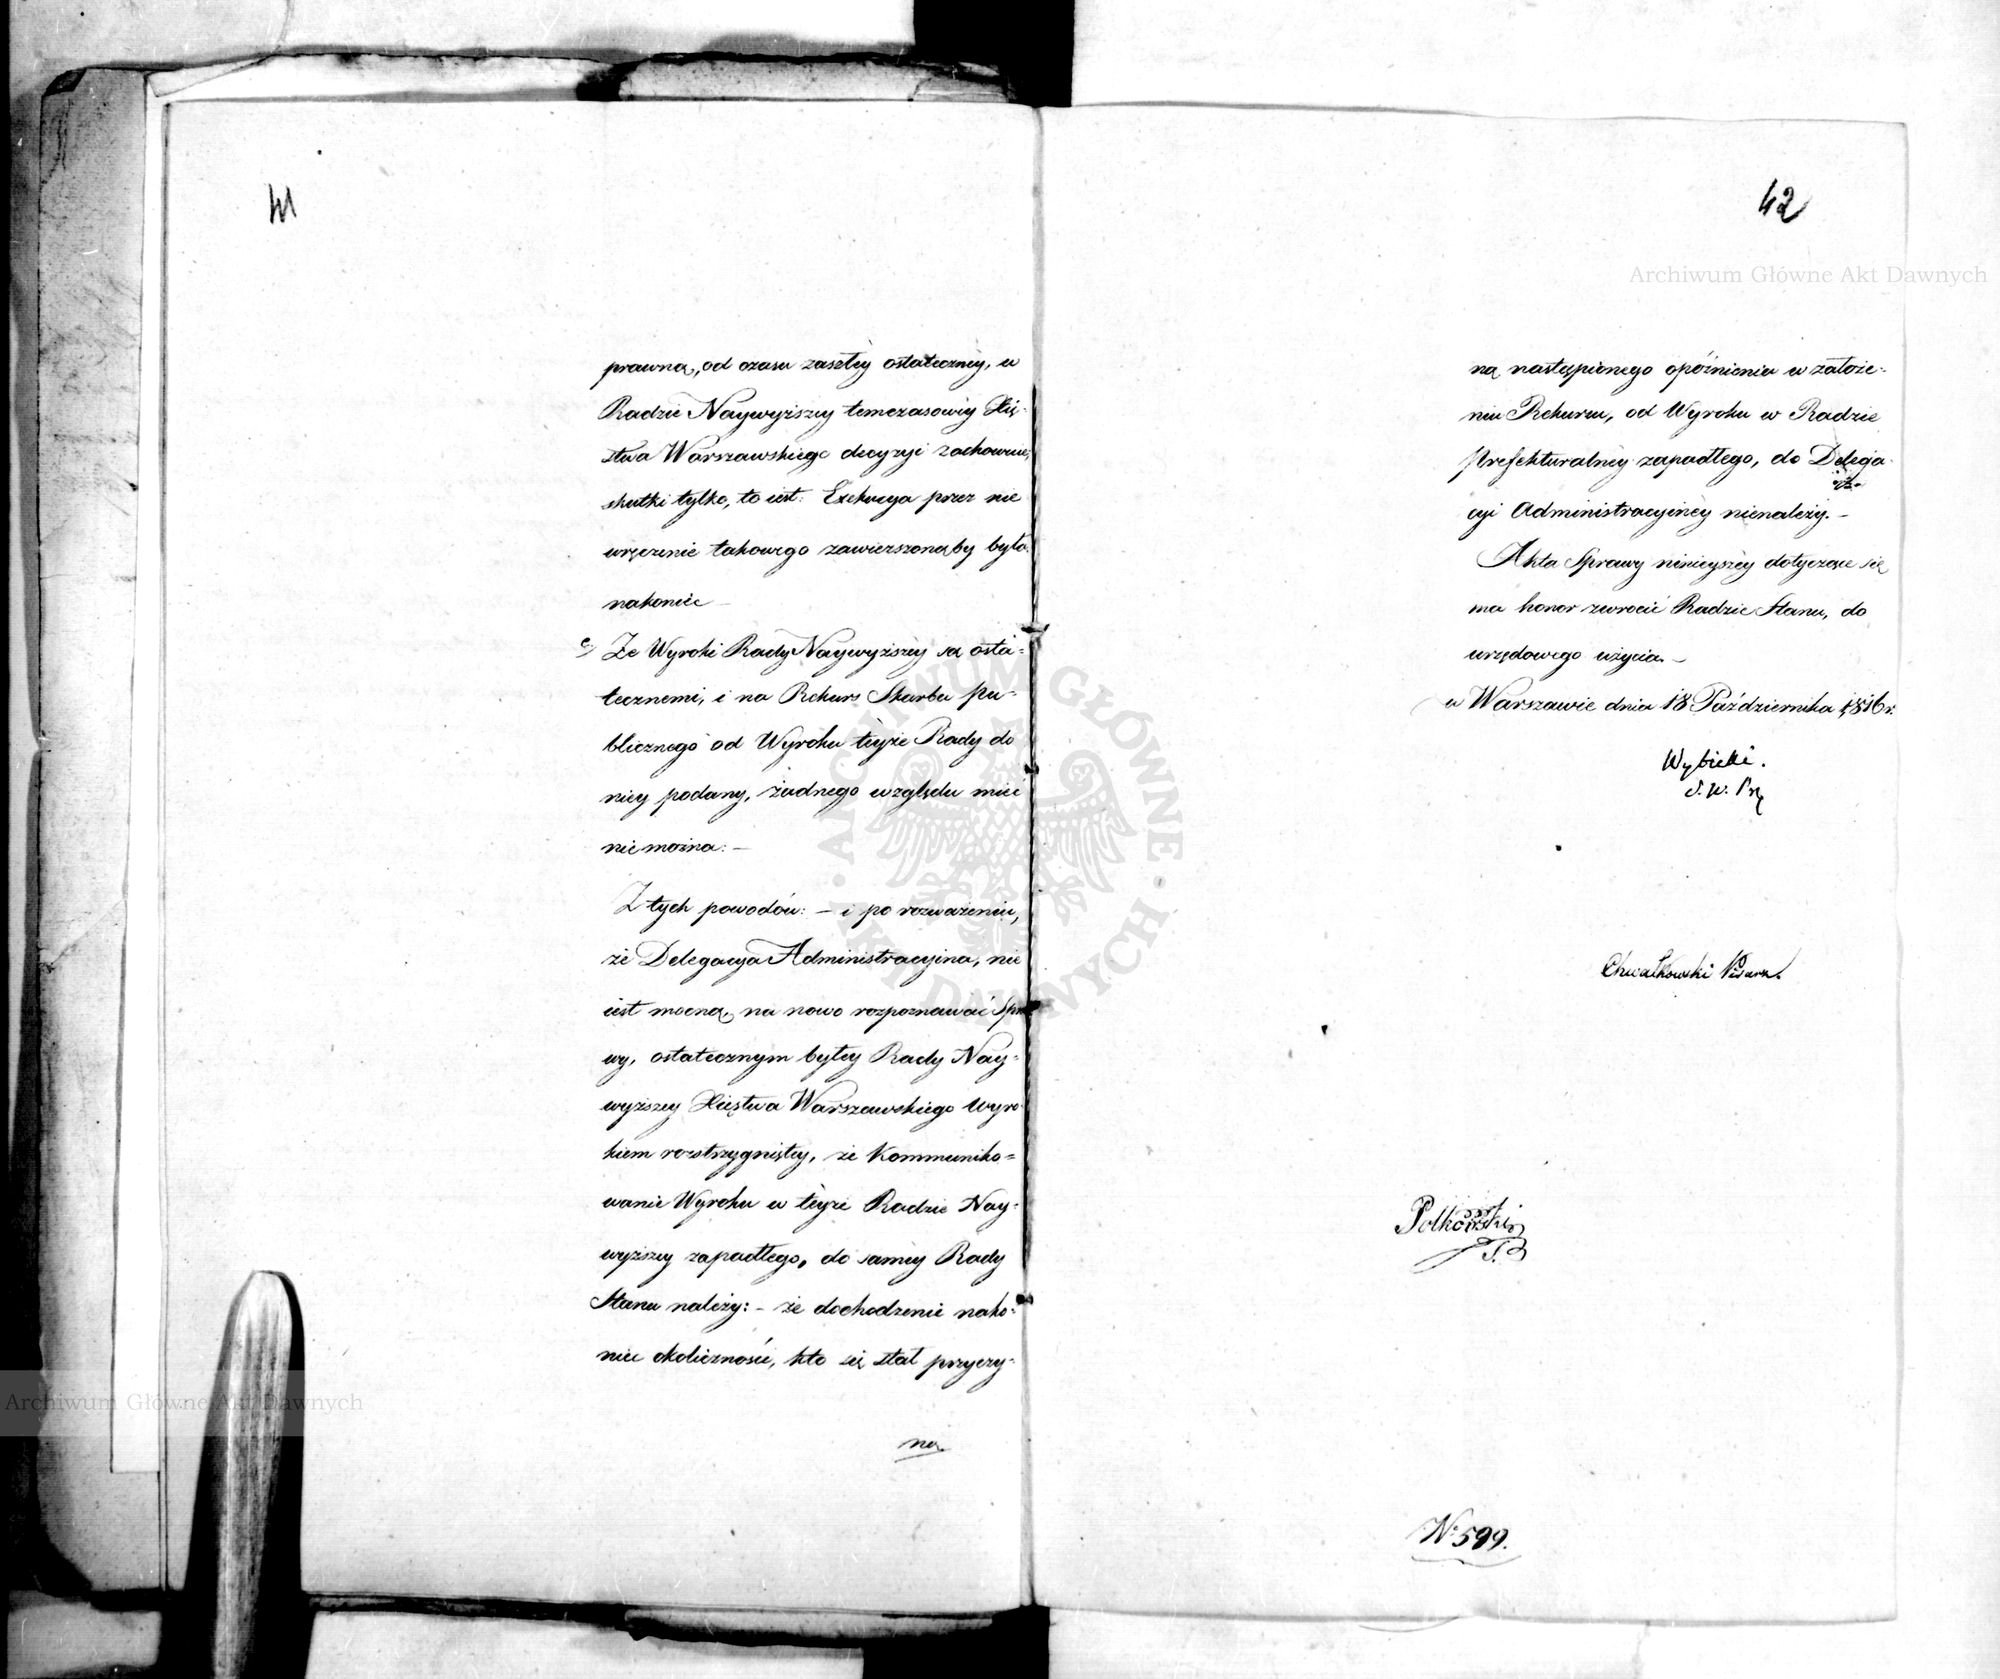 41
prawną, od czasu zaszłéy ostatecznéy, w
Radzie Naywyższéy temczasowéy Xię-
stwa Warszawskiego decyzyi zachowuie,
skutki tylko, to iest: Exekucya przez nie
wręczenie takowego zawieszonąby była.
nakoniec —
c) Że Wyroki Rady Naywyższéy są osta-
tecznemi, i na Rekurs Skarbu Pu-
blicznego od Wyroku téyże Rady do
niéy podany, żadnego względu mieć
nie można: —
Z tych powodów: — i po rozważeniu,
że Delegacya Administracyina, nie
iest mocną, na nowo rozpoznawać Spra
wy, ostatecznym byłéy Rady Nay-
wyższéy Xięstwa Warszawskiego Wyro-
kiem rozstrzygniętéy, że Kommuniko-
wanie Wyroku w téyże Radzie Nay-
wyższéy zapadłego, do saméy Rady
Stanu należy: — że dochodzenie nako-
niec okoliczności, kto się stał przyczy-
ną
42
ną nastąpionego opóźnienia w założe-
niu Rekursu, od Wyroku w Radzie
Prefekturalnéy zapadłego, do Delega-
cyi Administracyinéy nienależy. —
Akta Sprawy ninieyszéy dotyczące się
ma honor zwrócić Radzie Stanu, do
urzędowego użycia. —
w Warszawie dnia 18 Października 1816 r.
Wybicki.
S. W. Prz
Chwałkowski Pisarz.
Polkowski
No 599.
Archiwum Główne Akt Dawnych
Archiwum Główne Akt Dawnych
ARCHIWUM GŁÓWNE AKT DAWNYCH